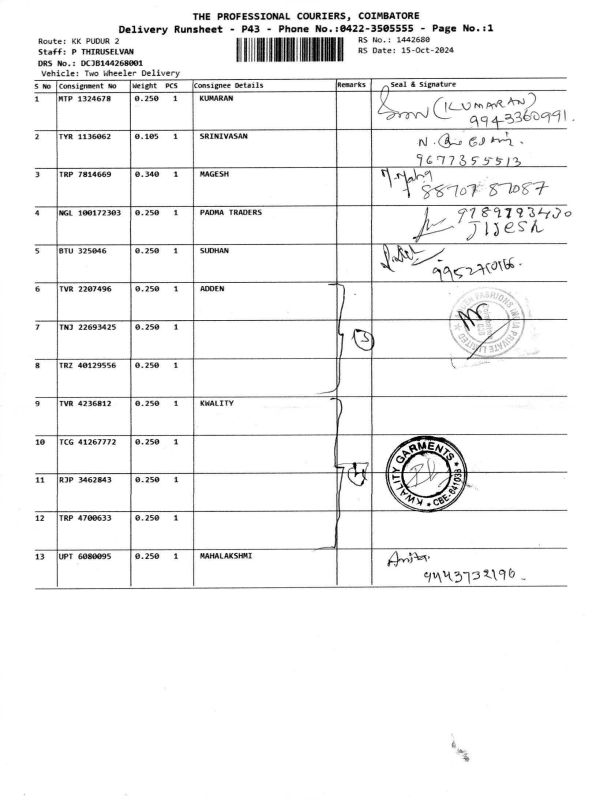 THE PROFESSIONAL COURIERS, COIMBATORE
Delivery Runsheet - P43 - Phone No.:0422-3505555 - Page No.:1
Route: KK PUDUR 2 RS No.: 1442680
Staff: P THIRUSELVAN RS Date: 15-Oct-2024
DRS No.: DCJB144268001
Vehicle: Two Wheeler Delivery
S No Consignment No Weight PCS Consignee Details Remarks Seal & Signature
1 MTP 1324678 0.250 1 KUMARAN (KUMARAN)
9943360991.
2 TYR 1136062 0.105 1 SRINIVASAN N.
9677355513
3 TRP 7814669 0.340 1 MAGESH
88707 87087
4 NGL 100172303 0.250 1 PADMA TRADERS 9789793430
JIJESH
5 BTU 325046 0.250 1 SUDHAN
6 TVR 2207496 0.250 1 ADDEN
FASHIONS INDIA PRIVATE LIMITED
7 TNJ 22693425 0.250 1 3
8 TRZ 40129556 0.250 1
9 TVR 4236812 0.250 1 KWALITY
10 TCG 41267772 0.250 1
KWALITY GARMENTS * CBE-641038 *
11 RJP 3462843 0.250 1 4
12 TRP 4700633 0.250 1
13 UPT 6080095 0.250 1 MAHALAKSHMI Anita.
9443732196.